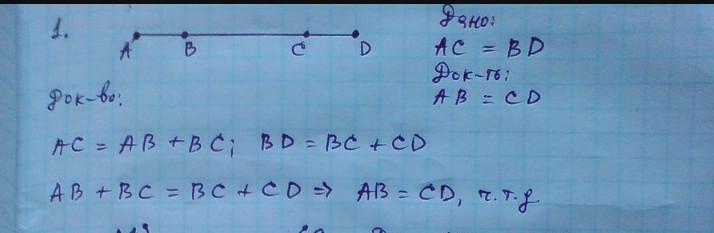 1.
A B C D
Дано:
AC = BD
Док-ть:
AB = CD
Док-во:
AC = AB + BC; BD = BC + CD
AB + BC = BC + CD ⇒ AB = CD, ч.т.д.